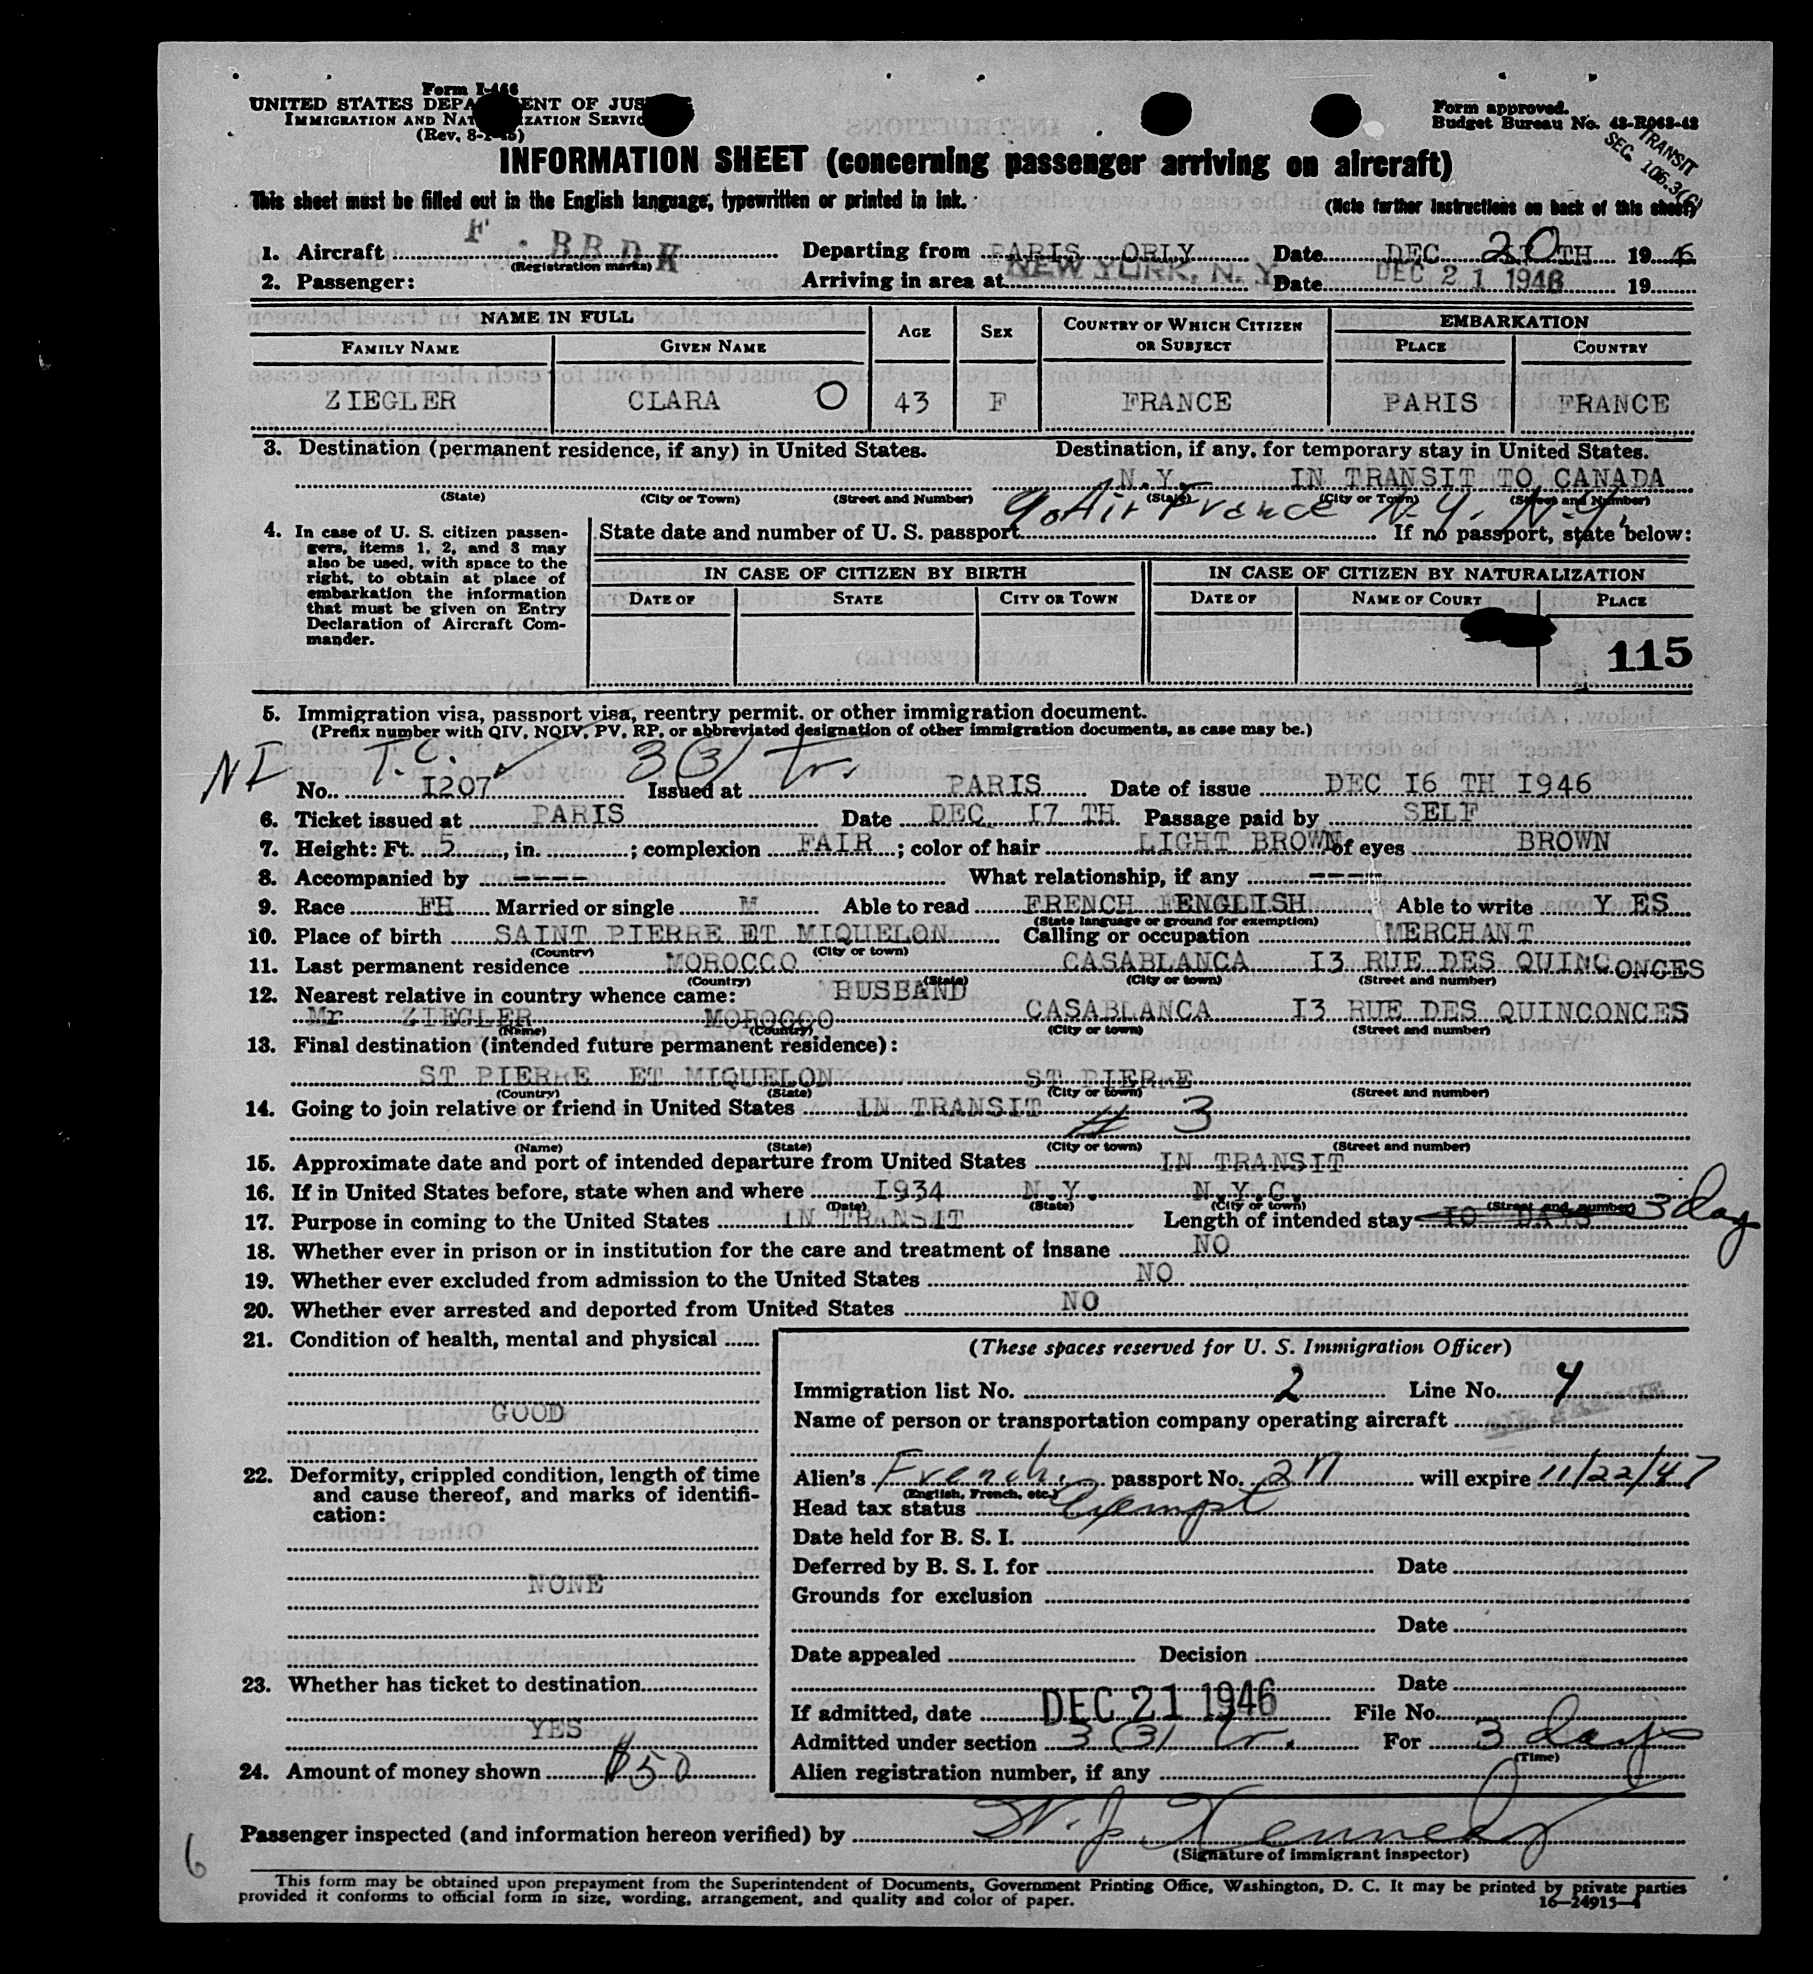 Form I-466
UNITED STATES DEPARTMENT OF JUSTICE
IMMIGRATION AND NATURALIZATION SERVICE
(Rev. 8-1-45)
Form approved.
Budget Bureau No. 43-R063-42
TRANSIT
SEC. 106.3(C)
INFORMATION SHEET (concerning passenger arriving on aircraft)
This sheet must be filled out in the English language, typewritten or printed in ink.
(Note further instructions on back of this sheet)
1. Aircraft F . BBDK Departing from PARIS ORLY Date DEC 20TH 19 46
(Registration marks)
2. Passenger: Arriving in area at NEW YORK, N. Y. Date DEC 21 1946 19
NAME IN FULL AGE SEX COUNTRY OF WHICH CITIZEN OR SUBJECT EMBARKATION
FAMILY NAME GIVEN NAME PLACE COUNTRY
ZIEGLER CLARA O 43 F FRANCE PARIS FRANCE
3. Destination (permanent residence, if any) in United States. Destination, if any, for temporary stay in United States.
N.Y. IN TRANSIT TO CANADA
(State) (City or Town) (Street and Number) (State) (City or Town) (Street and Number)
Air France N.Y. N.Y.
4. In case of U. S. citizen passengers, items 1, 2, and 3 may also be used, with space to the right, to obtain at place of embarkation the information that must be given on Entry Declaration of Aircraft Commander.
State date and number of U. S. passport If no passport, state below:
IN CASE OF CITIZEN BY BIRTH IN CASE OF CITIZEN BY NATURALIZATION
DATE OF STATE CITY OR TOWN DATE OF NAME OF COURT PLACE
115
5. Immigration visa, passport visa, reentry permit, or other immigration document.
(Prefix number with QIV, NQIV, PV, RP, or abbreviated designation of other immigration documents, as case may be.)
NI T.C. 3(3) tr.
No. I207 Issued at PARIS Date of issue DEC I6 TH I946
6. Ticket issued at PARIS Date DEC. I7 TH Passage paid by SELF
7. Height: Ft. 5, in. ; complexion FAIR ; color of hair LIGHT BROWN of eyes BROWN
8. Accompanied by ---- What relationship, if any ----
9. Race FH Married or single M Able to read FRENCH ENGLISH Able to write Y ES
(State language or ground for exemption)
10. Place of birth SAINT PIERRE ET MIQUELON Calling or occupation MERCHANT
(Country) (City or town)
11. Last permanent residence MOROCCO CASABLANCA I3 RUE DES QUINCONCES
(Country) (State) (City or town) (Street and number)
12. Nearest relative in country whence came: HUSBAND
Mr ZIEGLER MOROCCO CASABLANCA I3 RUE DES QUINCONCES
(Name) (Country) (City or town) (Street and number)
13. Final destination (intended future permanent residence):
ST PIERRE ET MIQUELON ST PIERRE
(Country) (State) (City or town) (Street and number)
14. Going to join relative or friend in United States IN TRANSIT
# 3
(Name) (State) (City or town) (Street and number)
15. Approximate date and port of intended departure from United States IN TRANSIT
16. If in United States before, state when and where I934 N.Y. N.Y.C.
(Date) (State) (City or town) (Street and number)
17. Purpose in coming to the United States IN TRANSIT Length of intended stay IO DAYS 3 day
18. Whether ever in prison or in institution for the care and treatment of insane NO
19. Whether ever excluded from admission to the United States NO
20. Whether ever arrested and deported from United States NO
21. Condition of health, mental and physical
GOOD
22. Deformity, crippled condition, length of time and cause thereof, and marks of identification:
NONE
23. Whether has ticket to destination
YES
24. Amount of money shown $50
(These spaces reserved for U. S. Immigration Officer)
Immigration list No. 2 Line No. 4
Name of person or transportation company operating aircraft AIR FRANCE
Alien's French passport No. 27 will expire 11/22/47
(English, French, etc.)
Head tax status Exempt
Date held for B. S. I.
Deferred by B. S. I. for Date
Grounds for exclusion
Date
Date appealed Decision
Date
If admitted, date DEC 21 1946 File No.
Admitted under section 3 (3) tr. For 3 days
(Time)
Alien registration number, if any
Passenger inspected (and information hereon verified) by W. J. Kennedy
(Signature of immigrant inspector)
6
This form may be obtained upon prepayment from the Superintendent of Documents, Government Printing Office, Washington, D. C. It may be printed by private parties
provided it conforms to official form in size, wording, arrangement, and quality and color of paper.
16—24915-1